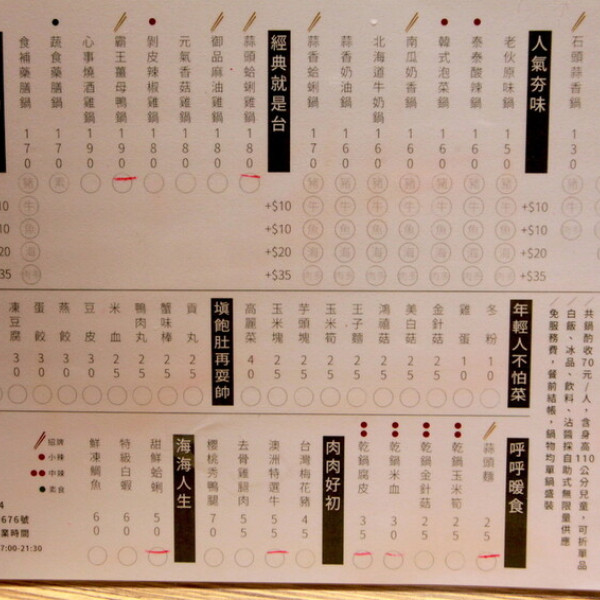 石頭蒜香鍋 130
人氣夯味
老伙原味鍋 150
泰泰酸辣鍋 160
韓式泡菜鍋 160
南瓜奶香鍋 160
北海道牛奶鍋 160
蒜香奶油鍋 160
蒜香蛤蜊鍋 170
豬
牛 +$10
魚 +$10
海 +$20
+$35
經典就是台
蒜頭蛤蜊雞鍋 180
御品麻油雞鍋 180
元氣香菇雞鍋 180
剝皮辣椒雞鍋 180
霸王薑母鴨鍋 190
心事燒酒雞鍋 190
蔬食藥膳鍋 170
素
食補藥膳鍋 170
豬
牛
魚
海
共鍋酌收70元/人，含身高110公分兒童，可折單品
白飯、冰品、飲料、沾醬採自助式無限量供應
免服務費，餐前結帳，鍋物均單鍋盛裝
年輕人不怕菜
冬粉 10
雞蛋 10
金針菇 25
美白菇 25
鴻禧菇 25
王子麵 25
玉米筍 25
芋頭塊 25
玉米塊 25
高麗菜 40
填飽肚再耍帥
貢丸 25
蟹味棒 25
鴨肉丸 25
米血 25
豆皮 30
燕餃 30
蛋餃 30
凍豆腐 30
呼呼暖食
蒜頭麵 25
乾鍋玉米筍 25
乾鍋金針菇 25
乾鍋米血 30
乾鍋腐皮 35
肉肉好初
台灣梅花豬 45
澳洲特選牛 55
去骨雞腿肉 55
櫻桃秀鴨腿 70
海海人生
甜鮮蛤蜊 50
特級白蝦 60
鮮凍鯛魚 60
招牌
小辣
中辣
素食
4
676號
業時間
7:00-21:30